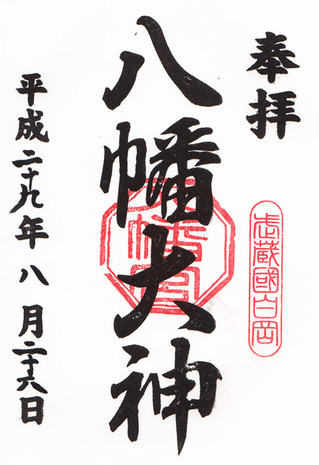 奉拝
武蔵國白岡
八幡大神
八幡宮
平成二十九年八月二十六日